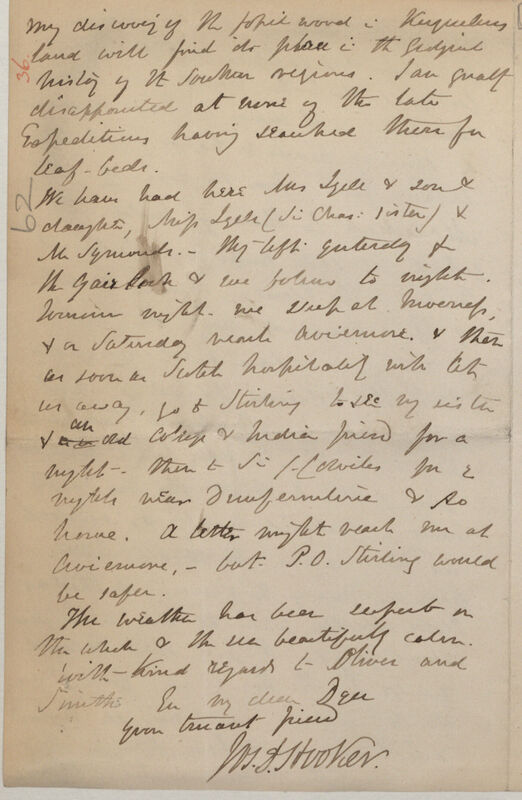 my discovery of the fossil wood in Kerguelens
land will find its place in the Geological
history of the Southern regions. I am greatly
disappointed at none of the late
Expeditions having searched there for
leaf-beds.
We have had here Mrs Lyell & son &
daughter, Miss Lyell (Sir Chas: sister) &
Mr Symonds. - They left yesterday for
the Gairloch & we follow to night.
Tomorrow night we sleep at Inverness,
& on Saturday reach Aviemore. & then
as soon as Scotch hospitality will let
us away, go to Stirling to see my sister
& an old College & Indian friend for a
night - then to Sir for 2
nights near Dunfermline & so
home. A letter might reach me at
Aviemore, - but P.O. Stirling would
be safer.
The weather has been superb on
the whole & the sea beautifully calm.
With kind regards to Oliver and
Smith. Ever my dear Dyer
your truant friend
Jos. D. Hooker.
36
62